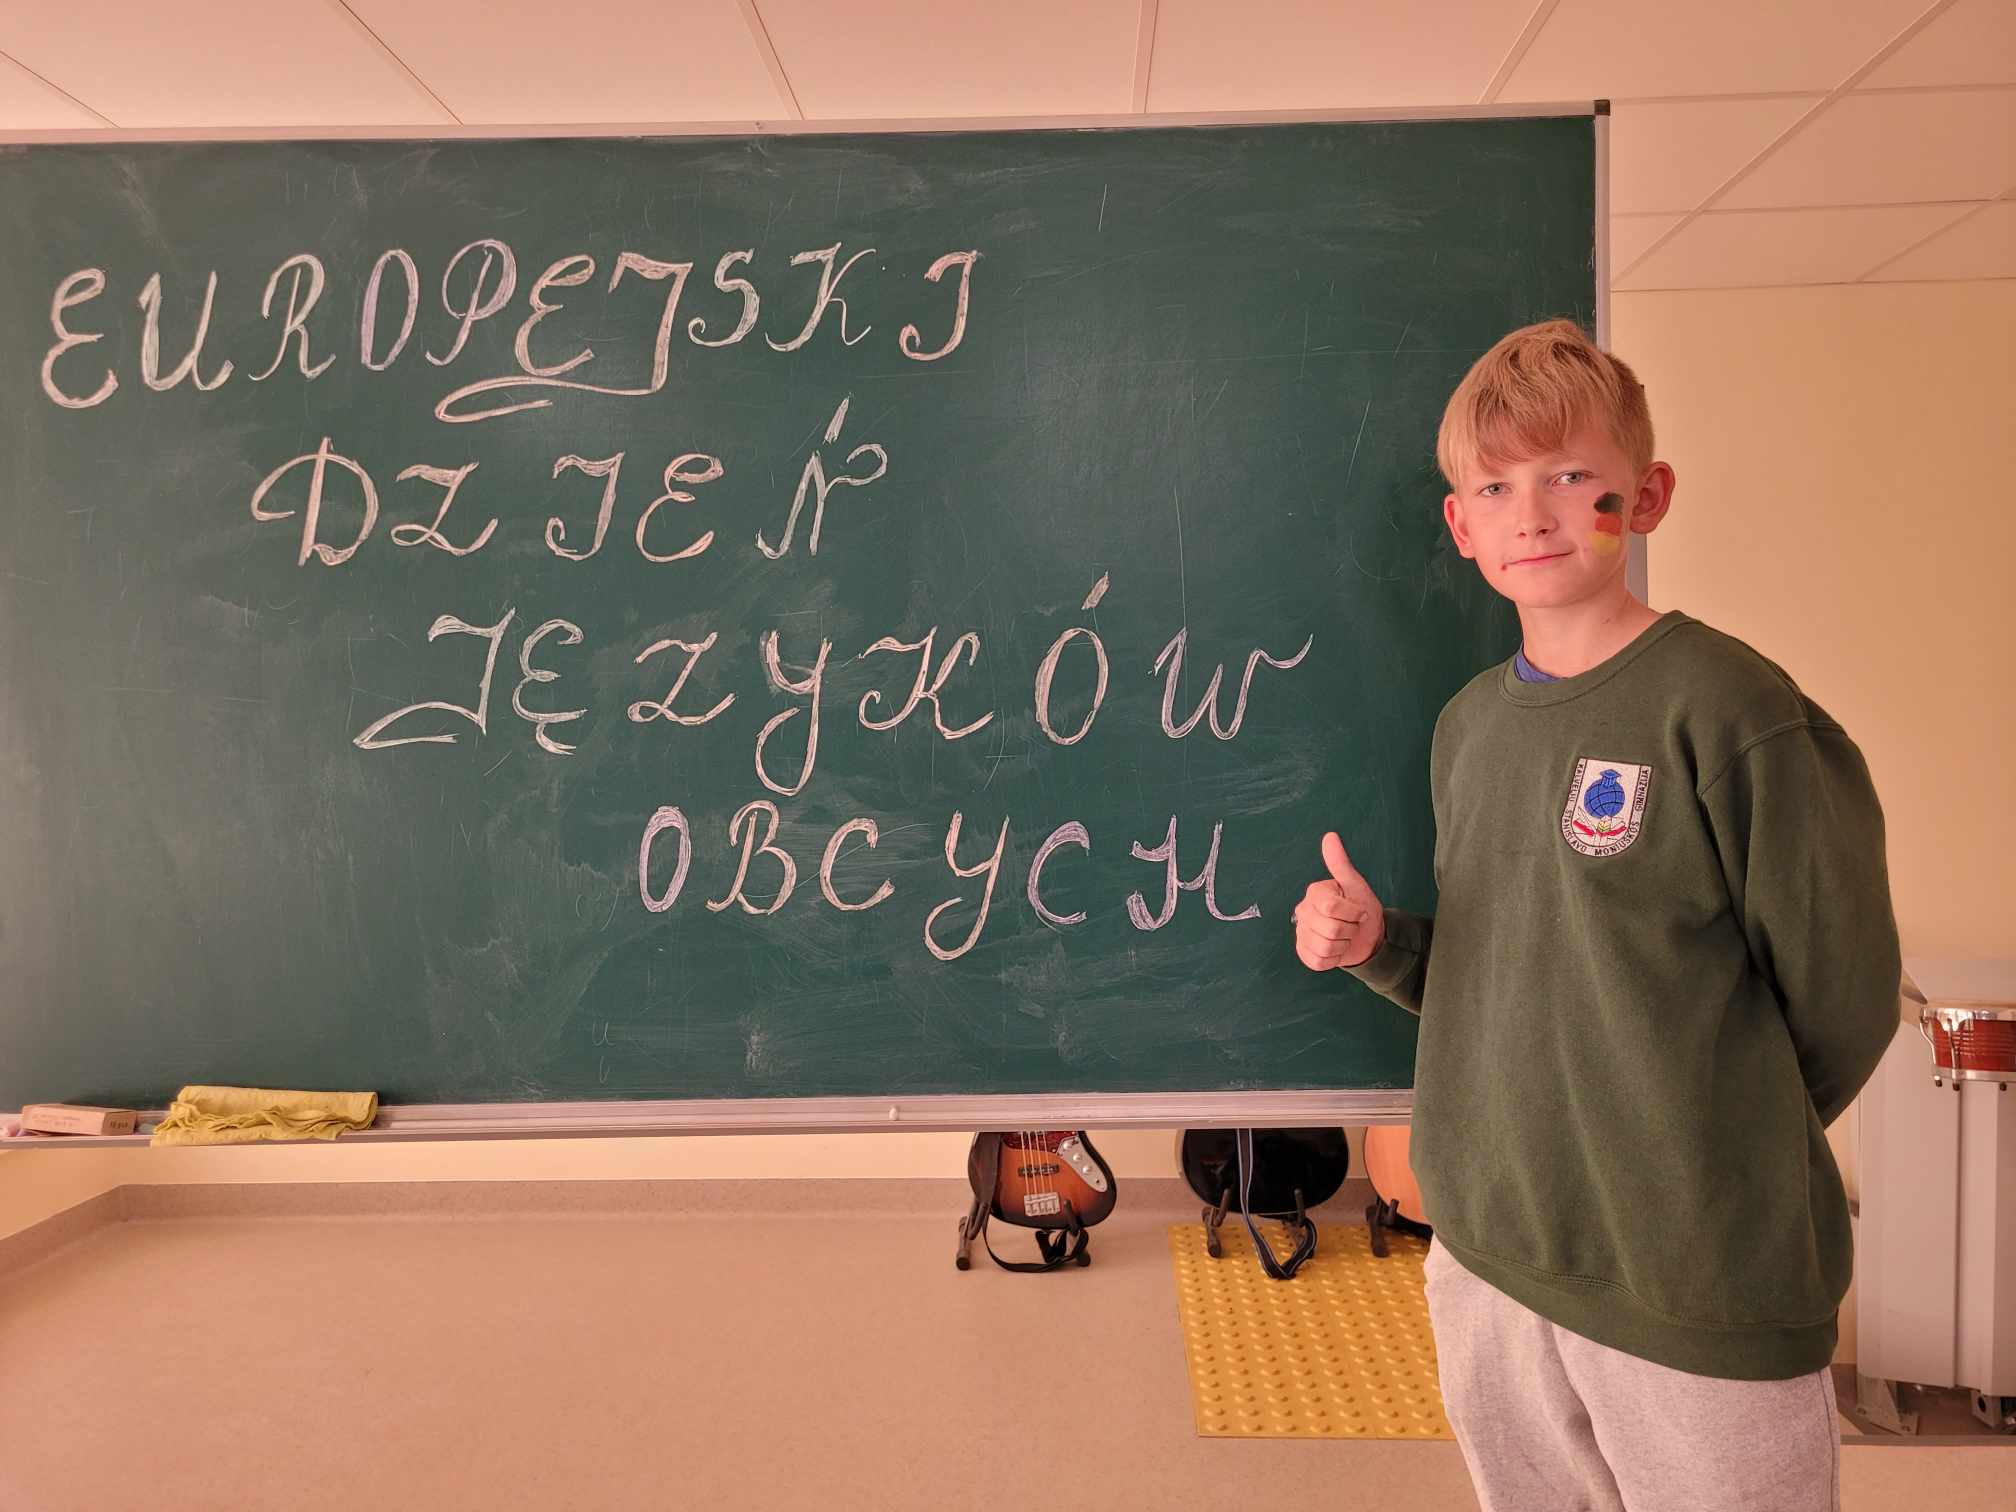 EUROPEJSKI
DZIEŃ
JĘZYKÓW
OBCYCH
KALVELIŲ STANISLAVO MONIUŠKOS GIMNAZIJA